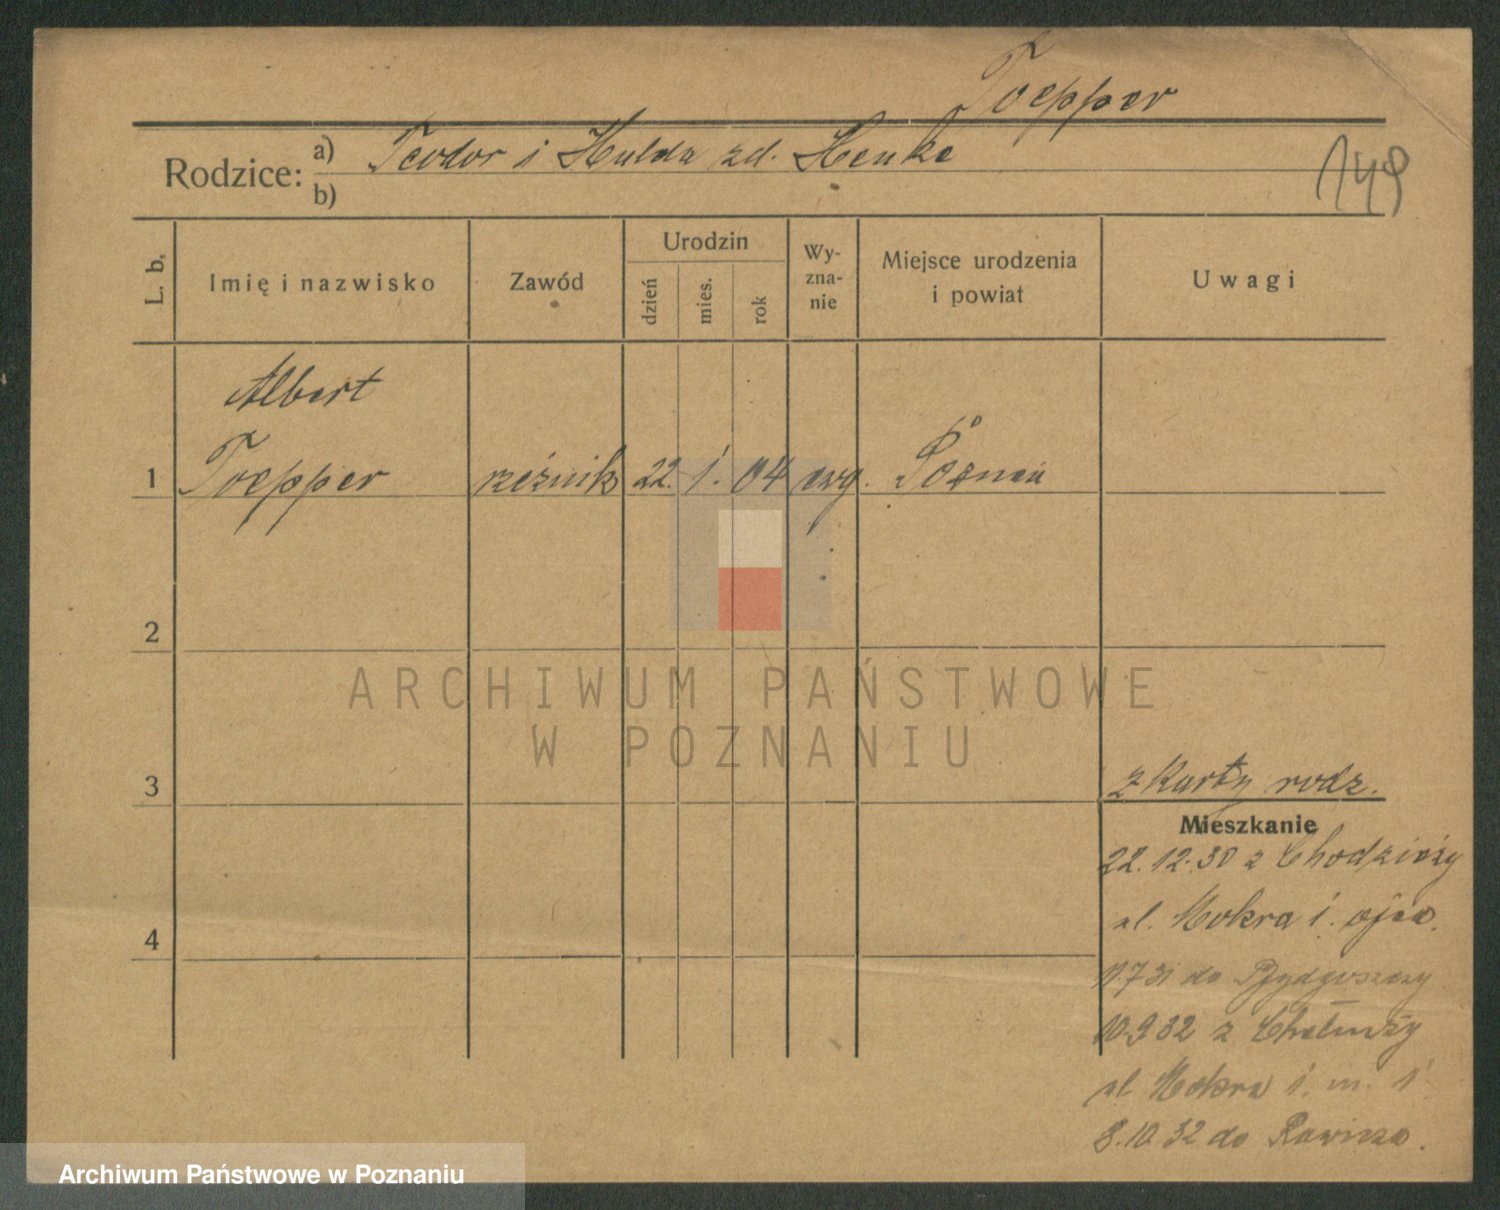 Toepper
Rodzice: a) Teodor i Hulda zd. Henke
b)
149
L. b. Imię i nazwisko Zawód Urodzin dzień mies. rok Wy-zna-nie Miejsce urodzenia i powiat Uwagi
Albert
1 Toepper rzeźnik 22. 1. 04 ewg. Poznań
2
ARCHIWUM PAŃSTWOWE
W POZNANIU
3
z karty rodz.
Mieszkanie
22.12.30 z Chodzieży
ul. Mokra 1. ojca.
4
11 7 31 do Bydgoszczy
10.9 32 z Chełmży
ul. Mokra 1. m. 1
8.10 32 do Rawicza.
Archiwum Państwowe w Poznaniu